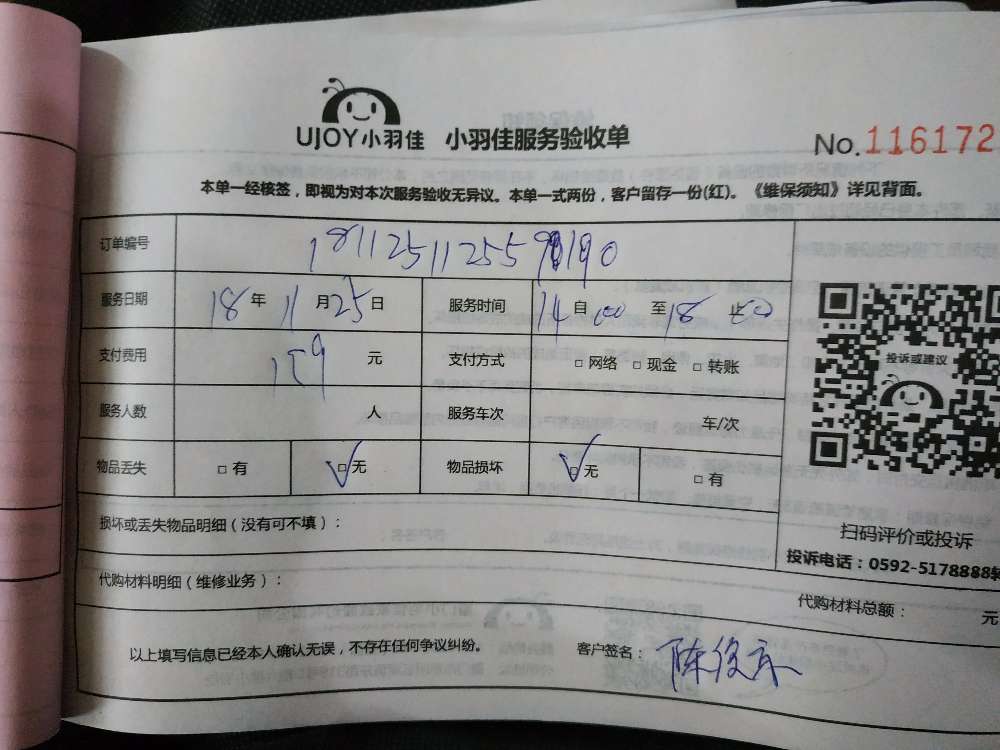 UJOY小羽佳 小羽佳服务验收单 No.116172
本单一经核签，即视为对本次服务验收无异议。本单一式两份，客户留存一份(红)。《维保须知》详见背面。
订单编号 181125112559190
服务日期 18年11月25日 服务时间 14自00至18止00
支付费用 159元 支付方式 □网络 □现金 □转账
投诉或建议
服务人数 人 服务车次 车/次
物品丢失 □有 ☑无 物品损坏 ☑无 □有
损坏或丢失物品明细（没有可不填）：
扫码评价或投诉
投诉电话：0592-5178888转
代购材料明细（维修业务）：
代购材料总额： 元
以上填写信息已经本人确认无误，不存在任何争议纠纷。 客户签名：陈俊